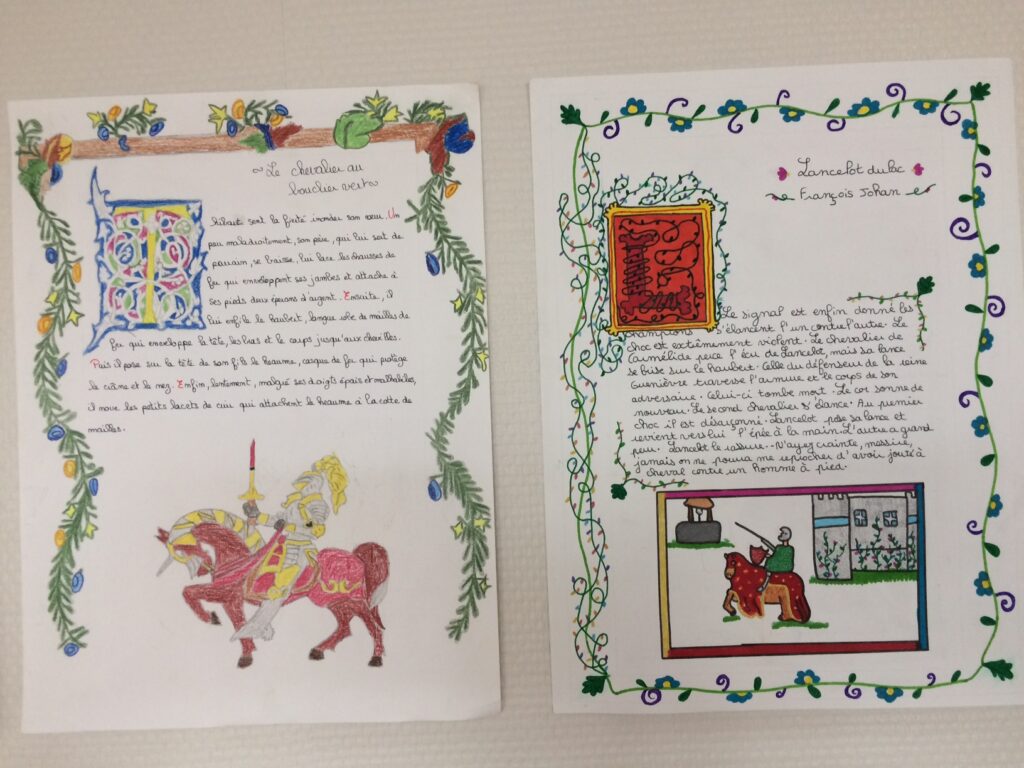 ~ Le chevalier au
bouclier vert ~
Thibaut sent la fierté inonder son cœur. Un
peu maladroitement, son père, qui lui sert de
parrain, se baisse, lui lace les chausses de
fer qui enveloppent ses jambes et attache à
ses pieds deux éperons d'argent. Ensuite, il
lui enfile le haubert, longue robe de mailles de
fer qui enveloppe la tête, les bras et le corps jusqu'aux chevilles.
Puis il pose sur la tête de son fils le heaume, casque de fer qui protège
le crâne et le nez. Enfin, lentement, malgré ses doigts épais et malhabiles,
il noue les petits lacets de cuir qui attachent le heaume à la cotte de
mailles.
Lancelot du lac
François Johan
Le signal est enfin donné les
champions s'élancent l'un contre l'autre. Le
choc est extrêmement violent. Le chevalier de
Carmélide perce l'écu de Lancelot, mais sa lance
se brise sur le haubert. Celle du défenseur de la reine
Guenièvre traverse l'armure et le corps de son
adversaire. Celui-ci tombe mort. Le cor sonne de
nouveau. Le second chevalier s'élance. Au premier
choc il est désarçonné. Lancelot pose sa lance et
revient vers lui l'épée à la main. L'autre a grand
peur. Lancelot le rassure. - N'ayez crainte, messire,
jamais on ne pourra me reprocher d'avoir jouté à
cheval contre un homme à pied.